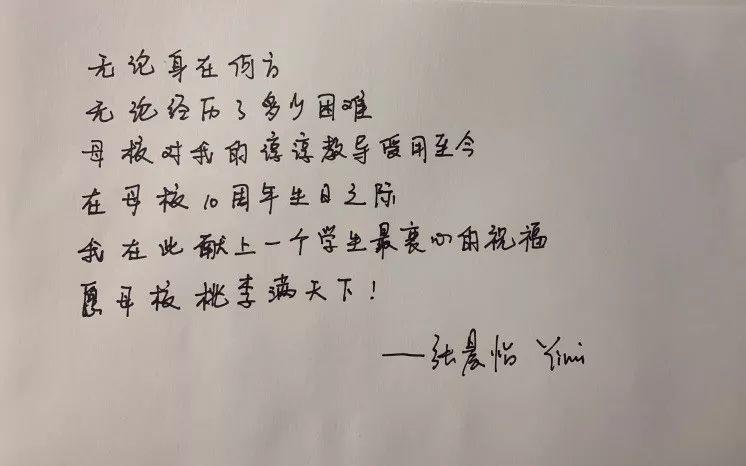 无论身在何方
无论经历了多少困难
母校对我的谆谆教导受用至今
在母校10周年生日之际
我在此献上一个学生最衷心的祝福
愿母校桃李满天下!
——张晨怡 Yimi